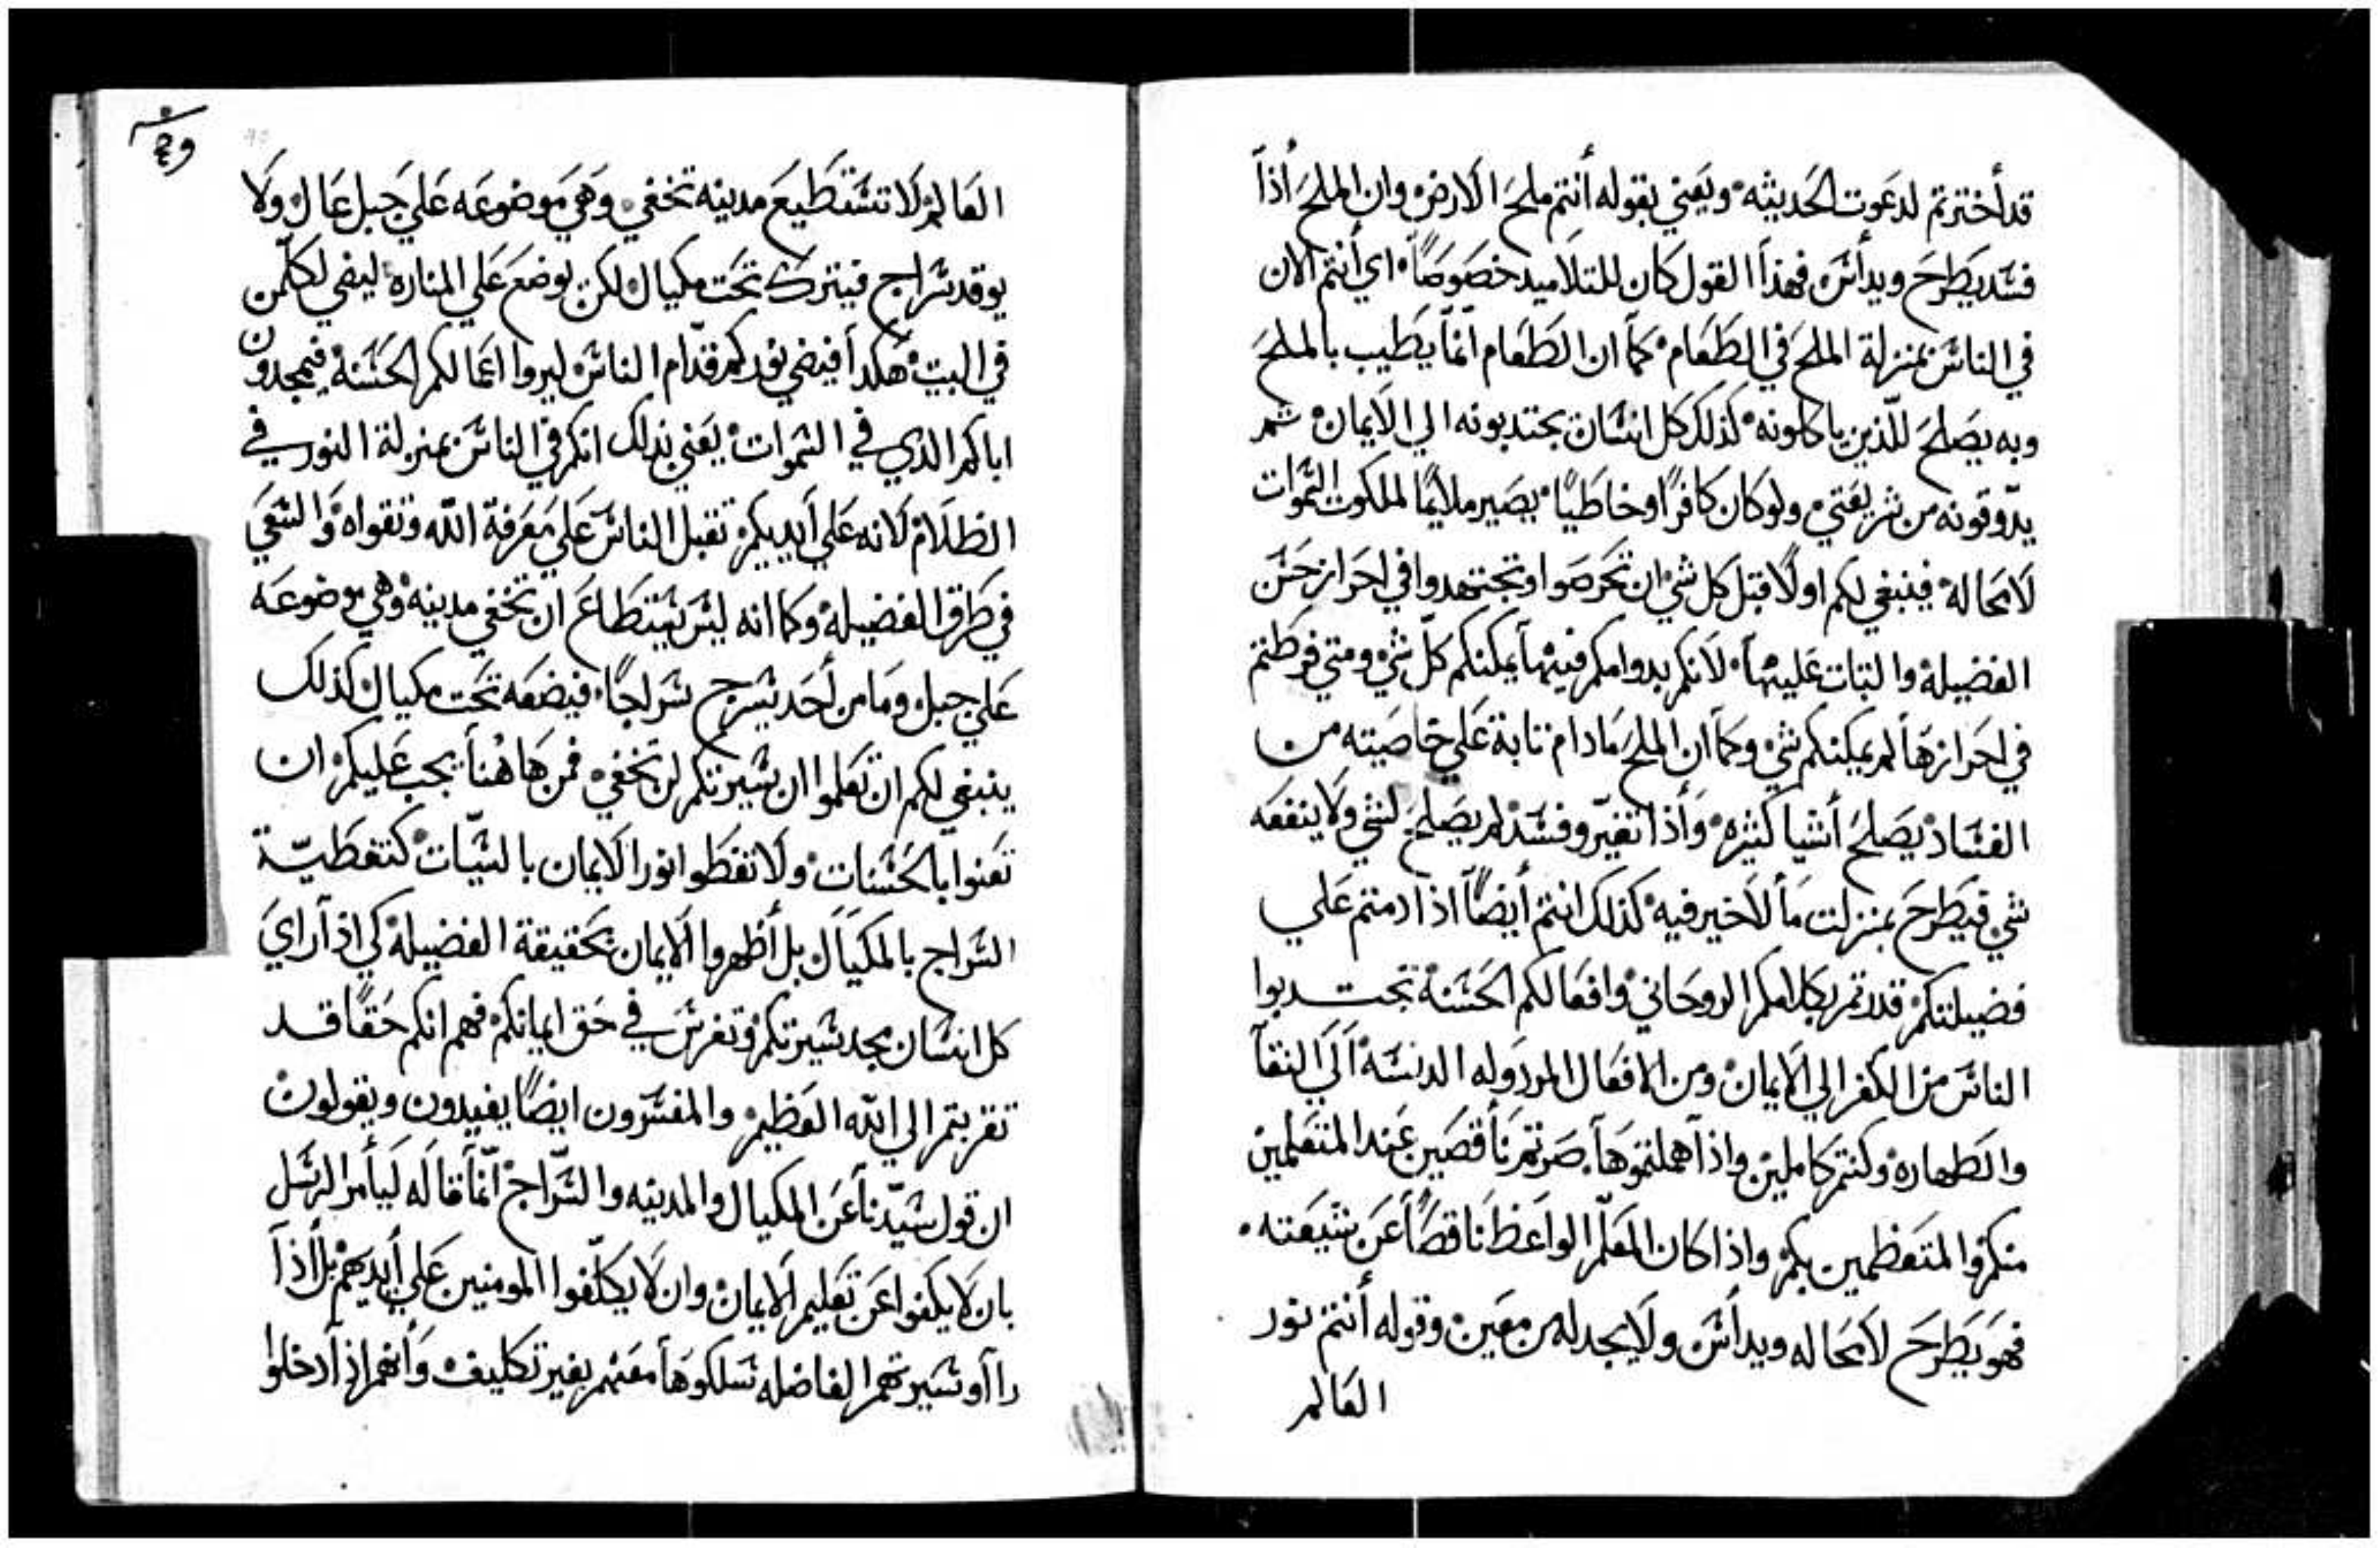 قد أخترتم لدعوت الحديثه ويعني بقوله أنتم ملح الارض وان الملح أذا
فسد يطرح ويدأس فهذا القول كان للتلاميد خصوصاً اي أنتم الان
في الناس بمنزلة الملح في الطعام كما ان الطعام انما يطيب بالملح
وبه يصلح للذين ياكلونه كذلك كل انسان يجتدبونه الي الايمان ثم
يدوقونه من ولو كان كافراً او خاطياً يصير ملايماً لملكوت السموات
لامحاله فينبغي لكم اولاً قبل كل شي ان تحرصوا وتجتهدوا في احراز حسن
الفضيله والتبات عليها لانكم بدوامكم فيها يمكنكم كل شي ومتي فرطتم
في احرازها لم يمكنكم شي وكما ان الملح مادام تابة علي خاصيته من
الفساد يصلح أشيا كثيره وأذا تغير وفسد لم يصلح لشي ولا ينفعه
شي فيطرح بمنزلت ما لاخير فيه كذلك انتم أيضاً اذا دمتم علي
فضيلتكم قدرتم بكلامكم الروحاني وافعالكم الحسنة تجتدبوا
الناس من الكفر الي الايمان ومن الافعال المردوله الدنسة الي النقا
والطهاره وكنتم كاملين واذا اهملتموها صرتم ناقصين عند المتعلمين
منكم والمتعظمين بكم واذا كان المعلم الواعظ ناقصاً عن شيعته
فهو يطرح لامحاله ويدأس ولا يجد له من معين وقوله أنتم نور
العالم
العالم لا تستطيع مدينه تخفي وهي موضوعه علي جبل عال ولا
يوقد سراج فيترك تحت مكيال لكن يوضع علي المناره ليضي لكل من
في البيت هكدا فيضي نوركم قدام الناس ليروا اعمالكم الحسنة فيمجدون
اباكم الذي في السموات يعني بذلك انكم في الناس بمنزلة النور في
الظلام لانه علي أيديكم تقبل الناس علي معرفة الله وتقواه والسعي
في طرق الفضيله وكما انه ليس يستطاع ان تخفي مدينه وهي موضوعه
علي جبل وما من أحد يسرج سراجاً فيضعه تحت مكيال كذلك
ينبغي لكم ان تعلموا ان سيرتكم لن تخفي فمن هاهنا يجب عليكم ان
تعنوا بالحسنات ولا تغطوا نور الايمان بالسيات كتغطيّة
السراج بالمكيال بل أظهروا الايمان بحقيقة الفضيلة كي اذا راي
كل انسان مجد سيرتكم وتفرس في حق ايمانكم فهم انكم حقاً قد
تقربتم الي الله العظيم والمفسرون ايضاً يفيدون ويقولون
ان قول سيدنا عن المكيال والمدينه والسراج انما قاله ليأمر الرسل
بان لا يكفوا عن تعليم الايمان وان لا يكلفوا المومنين علي أيديهم بل أذا
راأو سيرتهم الفاضله سلكوها معهم بغير تكليف وأنهم اذا دخلوا